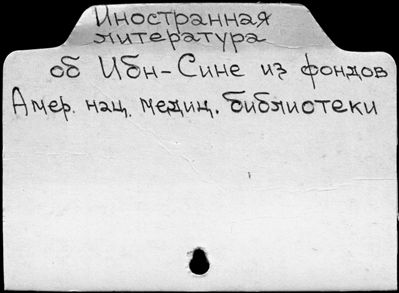 Иностранная
литература
об Ибн-Сине из фондов
Амер. нац. медиц. библиотеки